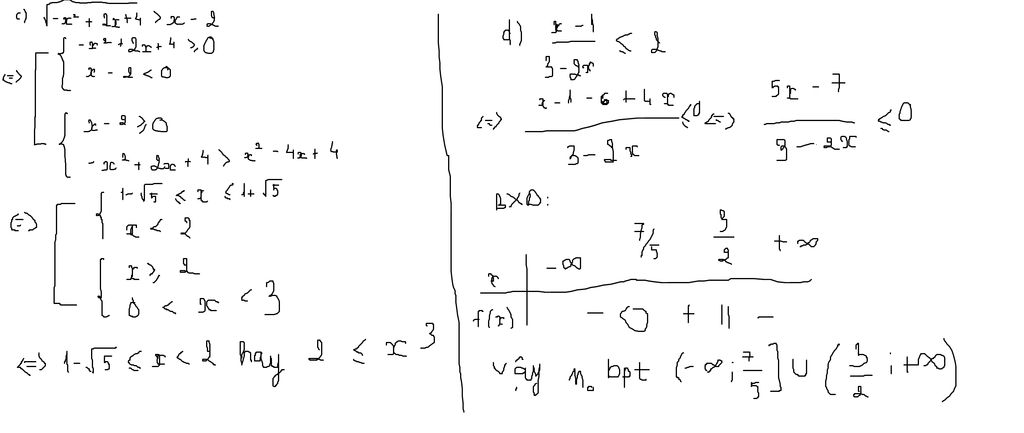 c) √(-x² + 2x + 4) > x - 2
<=> [ { -x² + 2x + 4 ≥ 0
x - 2 < 0
{ x - 2 ≥ 0
-x² + 2x + 4 > x² - 4x + 4
<=> [ { 1 - √5 ≤ x ≤ 1 + √5
x < 2
{ x ≥ 2
0 < x < 3
<=> 1 - √5 ≤ x < 2 hay 2 ≤ x 3
d) (x - 1)/(3 - 2x) ≤ 2
<=> (x - 1 - 6 + 4x)/(3 - 2x) ≤ 0 <=> (5x - 7)/(3 - 2x) ≤ 0
BXD:
x | -∞ 7/5 3/2 +∞
f(x) | - 0 + || -
vậy n. bpt (-∞; 7/5] ∪ (3/2; +∞)